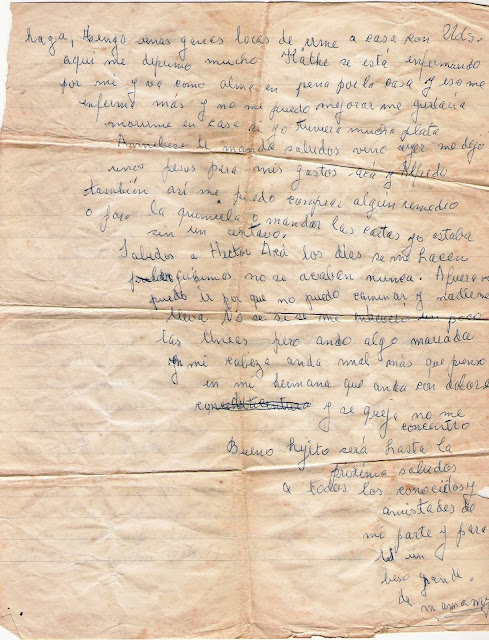 haga, tengo unas ganas locas de irme a casa con Uds.
aqui me deprimo mucho Kathe se está enfermando
por mi y va como alma en pena por la casa y eso me
enferma más y no me puedo mejorar me gustaria
morirme en casa si yo tuviera mucha plata
Anneliese te manda saludos vino ayer me dejo
unos pesos para mis gastos acá y Alfredo
también así me puedo comprar algun remedio
o para la quiniela o mandar las cartas yo estaba
sin un centavo.
Saludos a Hector Acá los dias se me hacen
larguisimos no se acaban nunca. Afuera no
puedo ir por que no puedo caminar y nadie me
lleva. No se si se me tuercen un poco
las lineas pero ando algo mareada
en mi cabeza anda mal más que pienso
en mi hermana que anda con dolores
y se queja no me
concentro
Bueno hijito será hasta la
proxima saludos
a todos los conocidos y
amistades de
me parte y para
ti un
beso grande.
de mamamy